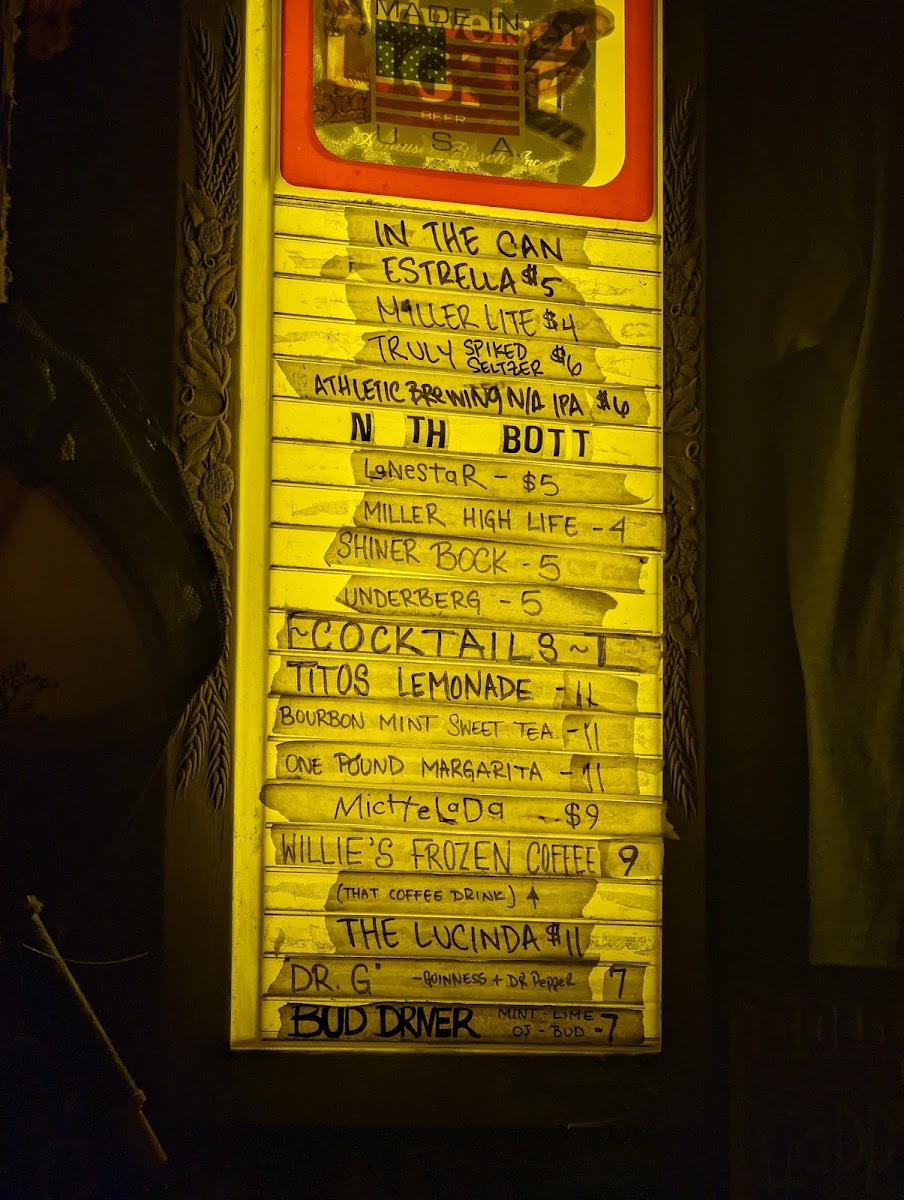 MADE IN
BEER
U S A
IN THE CAN
ESTRELLA $5
MILLER LITE $4
TRULY SPIKED SELTZER $6
ATHLETIC BREWING N/A IPA $6
N TH BOTT
LONESTAR - $5
MILLER HIGH LIFE - 4
SHINER BOCK - 5
UNDERBERG - 5
~COCKTAILS~
TITOS LEMONADE - 11
BOURBON MINT SWEET TEA - 11
ONE POUND MARGARITA - 11
MICHELADA - $9
WILLIE'S FROZEN COFFEE 9
(THAT COFFEE DRINK) ↑
THE LUCINDA $11
"DR. G" - GUINNESS + DR PEPPER 7
BUD DRIVER MINT - LIME OJ - BUD - 7